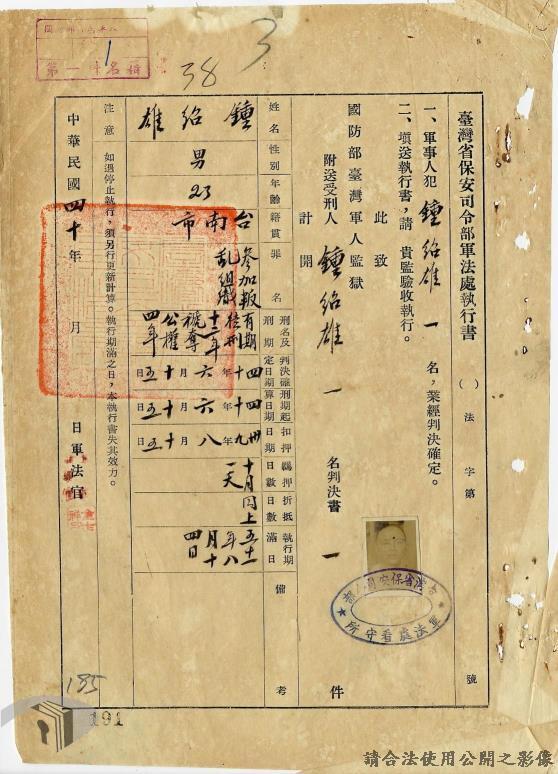 3
38
1
第一十名編
臺灣省保安司令部軍法處執行書
( )法字第 號
一、軍事人犯鍾紹雄一名，業經判決確定。
二、填送執行書，請 貴監驗收執行。
此致
國防部臺灣軍人監獄
附送受刑人鍾紹雄一名判決書一件
計開
姓名 性別 年齡 籍貫 罪名 刑名及刑期 判決確定日期 刑期起算日期 扣押日期 羈押日數 折抵日數 執行期滿日 備考
鍾紹雄
男
23
台南市
參加叛乱組織
有期徒刑十二年褫奪公權四年
四十年六月十五日
四十年六月十五日
卅九年八月十五日
十月一天
同上
五十一年八月十四日
注意 如遇停止執行，須另行更新計算。執行期滿之日，本執行書失其效力。
中華民國四十年 月 日軍法官
台灣省保安司令部
軍法處看守所
185
191
請合法使用公開之影像